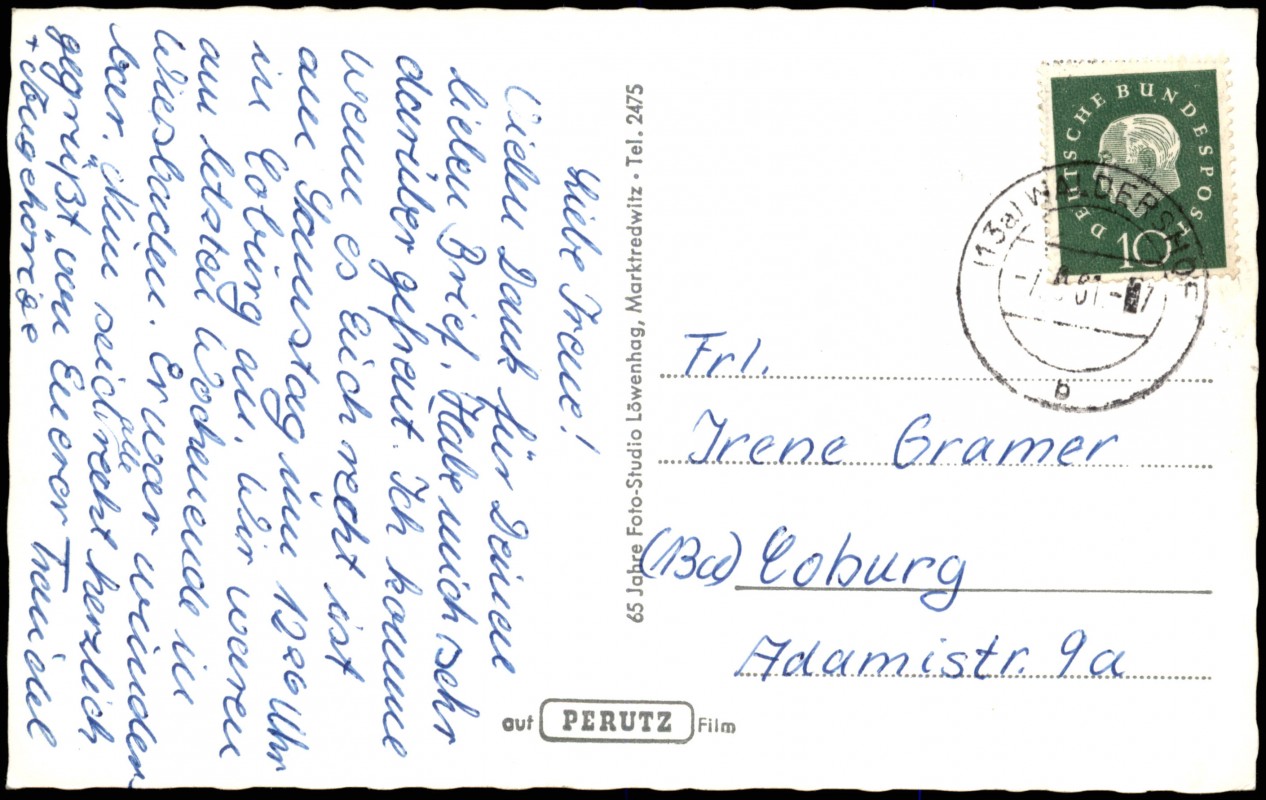 Liebe Irene!
Vielen Dank für Deinen
lieben Brief. Habe mich sehr
darüber gefreut. Ich komme
wenn es Euch recht ist
am Samstag um 12 20 Uhr
in Coburg an. Wir waren
am letzten Wochenende in
Wiesbaden. Er war wunder-
bar. Nun seid alle recht herzlich
gegrüßt von Eurer Traudel
+
65 Jahre Foto-Studio Löwenhag, Marktredwitz · Tel. 2475
auf PERUTZ Film
DEUTSCHE BUNDESPOST
10
(13a) WALDERSHOF
b
Frl.
Irene Gramer
(Ba) Coburg
Adamistr. 9a